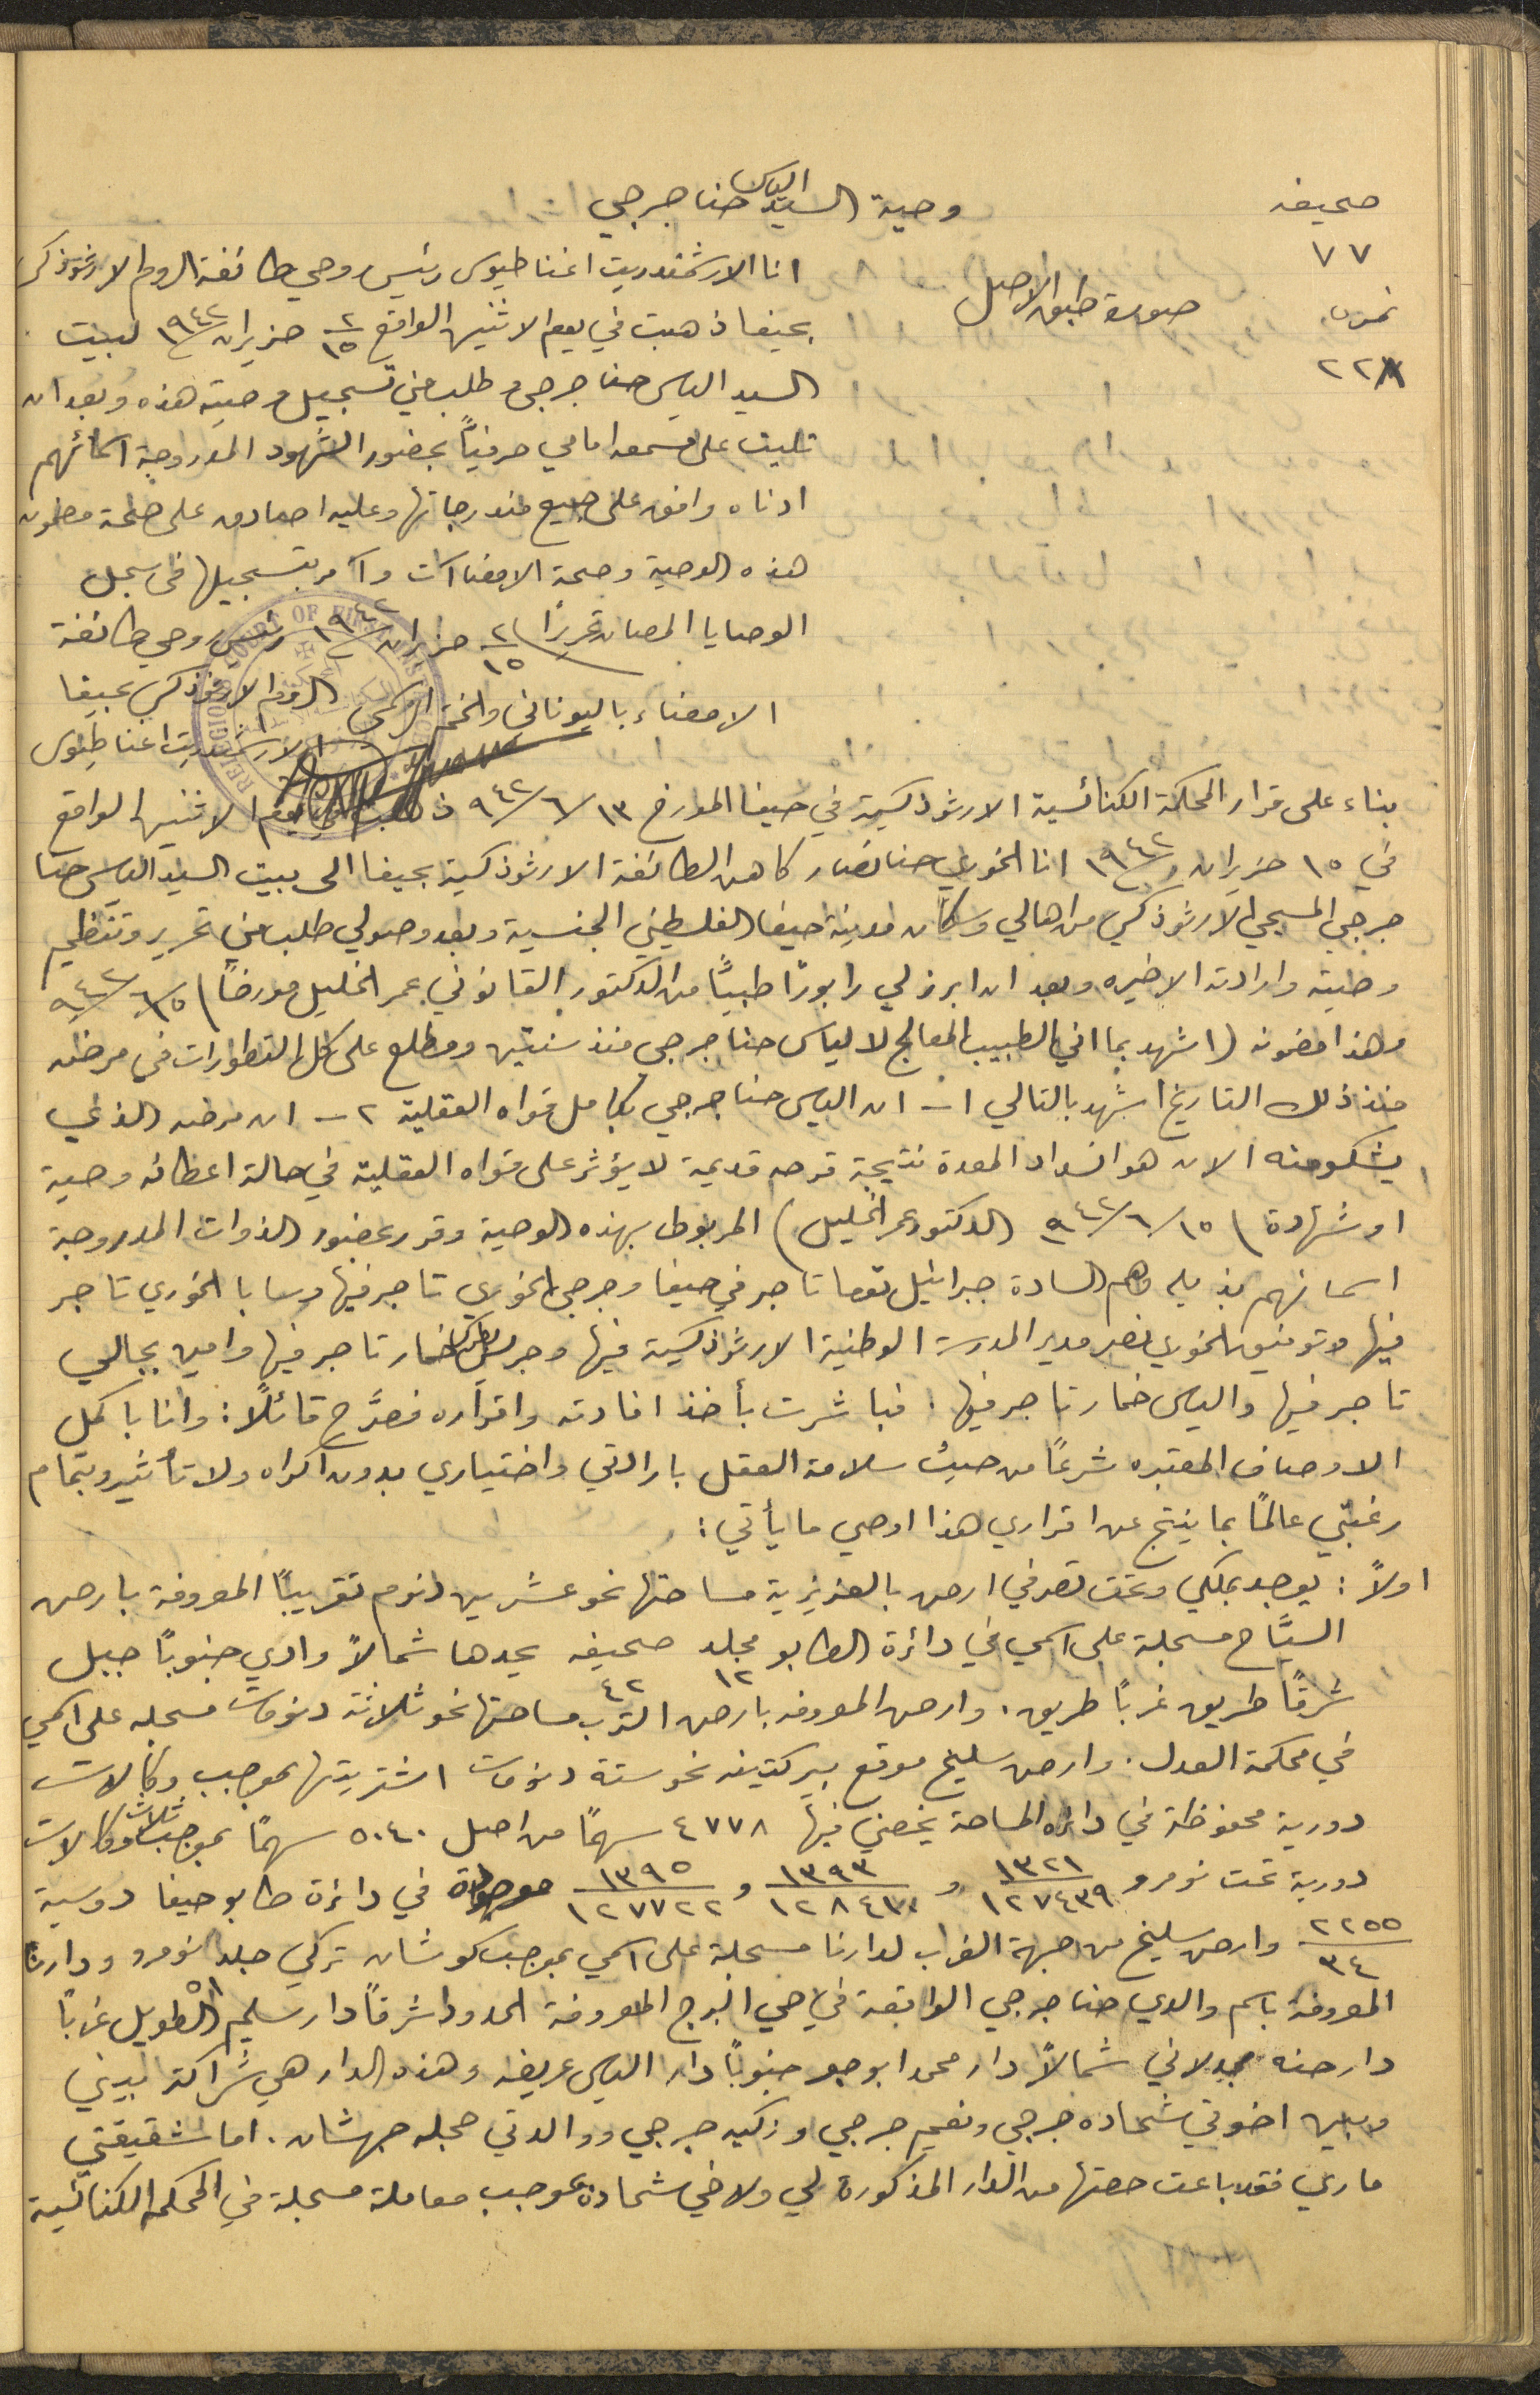 صحيفه
٧٧
نمرو
٢٢٨
وصية السيد الياس حنا جرجي
صورة طبق الاصل
انا الارشمندريت اغناطيوس رئيس روحي طائفة الروم الارثوذكس
بحيفا ذهبت في يوم الاثنين الواقع ٢/١٥ حزيران ١٩٤٢ لبيت
السيد الياس حنا جرجي وطلب مني تسجيل وصيته هذه وبعد ان
تليت على مسمعه امامي حرفياً بحضور الشهود المدروجة اسمائهم
ادناه وافق على جميع مندرجاتها وعليه اصادق على صحة مضمون
هذه الوصية وصحة الامضاآت وآمر بتسجيلها في سجل
الوصايا المصان تحريرًا ٢/١٥ حزيران ١٩٤٢ رئيس روحي طائفة
الامضاء باليوناني والختم الرسمي الروم الارثوذكس بحيفا
الارشمندريت اغناطيوس
بناء على قرار المحكمة الكنائسية الارثوذكسية في حيفا المورخ ١٣/٦/٩٤٢ ذهبت في يوم الاثنين الواقع
في ١٥ حزيران ١٩٤٢ انا الخوري حنا نصار كاهن الطائفة الارثوذكسية بحيفا الى بيت السيد الياس حنا
جرجي المسيحي الارثوذكسي من اهالي وسكان مدينة حيفا الفلسطيني الجنسية وبعد وصولي طلب مني تحرير وتنظيم
وصيته وارادته الاخيره وبعد ان ابرز لي رابورًا طبيًا من الدكتور القانوني عمر الخليل مورخًا ١٥/٦/٩٤٢
وهذا مضمونه (اشهد بما اني الطبيب المعالج لالياس حنا جرجي منذ سنتين ومطلع على كل التطورات في مرضه
منذ ذلك التاريخ اشهد بالتالي ١ـ ان الياس حنا جرجي بكامل قواه العقلية ٢ـ ان مرضه الذي
يشكو منه الان هو انسداد المعدة نتيجة قرحه قديمة لا يؤثر على قواه العقلية في حالة اعطائه وصية
او شهادة ١٥/٦/٩٤٢ الدكتور عمر الخليل) المربوط بهذه الوصية وقرر بحضور الذوات المدروجة
اسمائهم بذيله وهم السادة جبرائيل توما تاجر في حيفا وجرجي الخوري تاجر فيها وسابا الخوري تاجر
فيها وتوفيق الخوري نصر مدير المدرسة الوطنية الارثوذكسية فيها وجرجس خمار تاجر فيها وامين بجالي
تاجر فيها والياس خمار تاجر فيها: فباشرت بأخذ افادته واقراره فصرَّح قائلاً: وانا باكمل
الاوصاف المعتبره شرعًا من حيث سلامة العقل بارادتي واختياري بدون اكراه ولا تأثير وبتمام
رغبتي عالمًا بما ينتج عن اقراري هذا اوصي ما يأتي:
اولاً: يوجد بملكي وتحت تصرفي ارض بالعزيزية مساحتها نحو عشرين دنوم تقريبًا المعروفة بارض
السيَّاح مسجلة على اسمي في دائرة الطابو مجلد ١٢ صحيفه ٤٢ يحدها شمالاً وادي جنوبًا جبل
شرقًا طريق غربًا طريق. وارض المعروفه بارض الترب مساحتها نحو ثلاثة دنومات مسجله على اسمي
في محكمة العدل. وارض سليخ موقع بيركتينه نحو ستة دنومات اشتريتها بموجب وكالات
دورية محفوظة في دائرة المساحة يخصني فيها ٤٧٧٨ سهمًا من اصل ٥٠٤٠ سهمًا بموجب ثلاث وكالات
دورية تحت نومرو ١٣٢١/١٢٧٤٣٩ و ١٣٩٣/١٢٨٤٧٠ و ١٣٩٥/١٢٧٧٢٢ موجودة في دائرة طابو حيفا دوسية
٢٢٥٥/٣٤ وارض سليخ من جهة الغراب لدارنا مسجلة على اسمي بموجب كوشان تركي جلد نومرو ودارنا
المعروفة باسم والدي حنا جرجي الواقعة في حي البرج المعروفة الحدود شرقًا دار سليم الطويل غربًا
دار حنه مجدلاني شمالاً دار محمد ابو جنوبًا دار الياس عريضه وهذه الدار هي شراكة بيني
وبين اخوتي شحاده جرجي ونعيم جرجي وزكيه جرجي ووالدتي جهشان. اما شقيقتي
ماري فقد باعت حصتها من الدار المذكورة لي ولاخي شحاده بموجب معاملة مسجلة في المحكمة الكنائسية